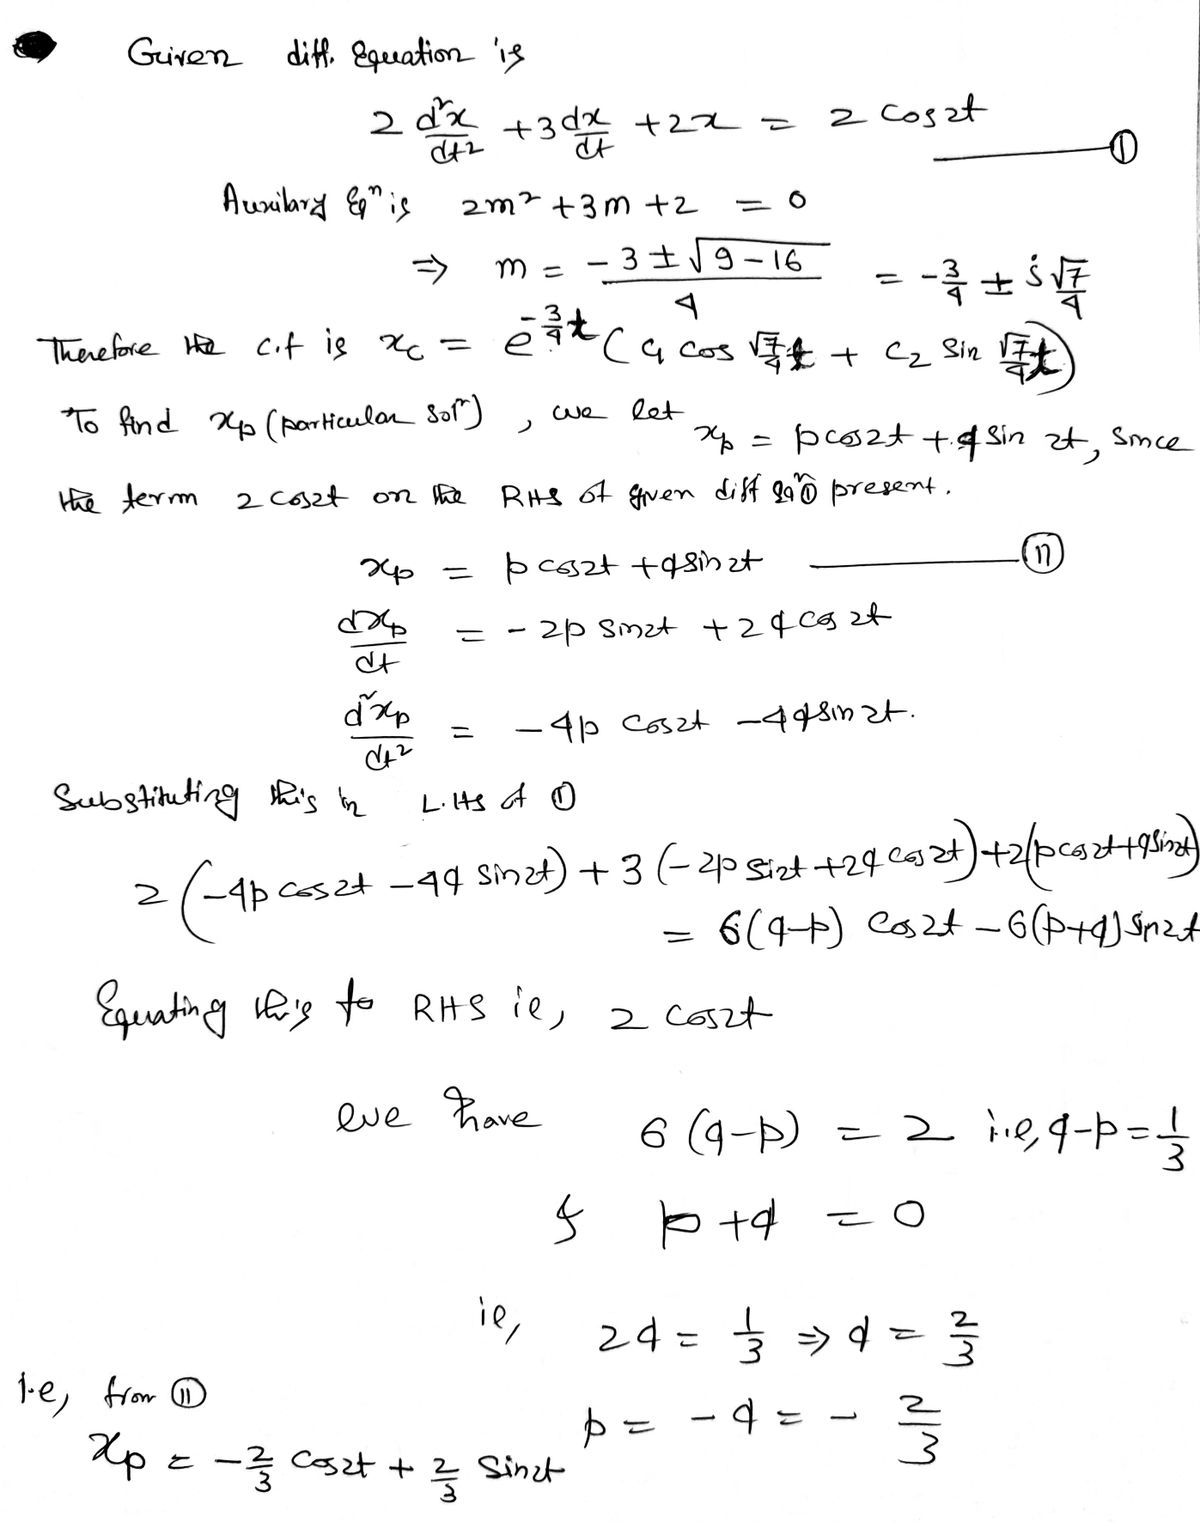 Given diff. Equation is
2 d²x/dt² + 3 dx/dt + 2x = 2 cos2t ——— ①
Auxilary Eqⁿ is 2m² + 3m + 2 = 0
⇒ m = (-3 ± √(9-16))/4 = -3/4 ± i √7/4
Therefore the c.f is x_c = e^(-3/4 t) (c₁ cos √7/4 t + c₂ sin √7/4 t)
To find x_p (particular solⁿ), we let x_p = p cos2t + q sin 2t, since
the term 2 cos2t on the RHS of given diff eqⁿ ① present.
x_p = p cos2t + q sin2t ——— ⑪
dx_p/dt = -2p sin2t + 2q cos 2t
d²x_p/dt² = -4p cos2t - 4q sin 2t.
Substituting this in L.Hs of ①
2(-4p cos2t - 4q sin2t) + 3(-2p sin2t + 2q cos2t) + 2(p cos2t + q sin2t)
= 6(q-p) cos2t - 6(p+q) sin2t
Equating this to RHS ie, 2 cos2t
we have 6(q-p) = 2 i.e, q-p = 1/3
& p + q = 0
ie, 2q = 1/3 ⇒ q = 2/3
p = -q = - 2/3
I.e, from ⑪
x_p = -2/3 cos2t + 2/3 sin2t